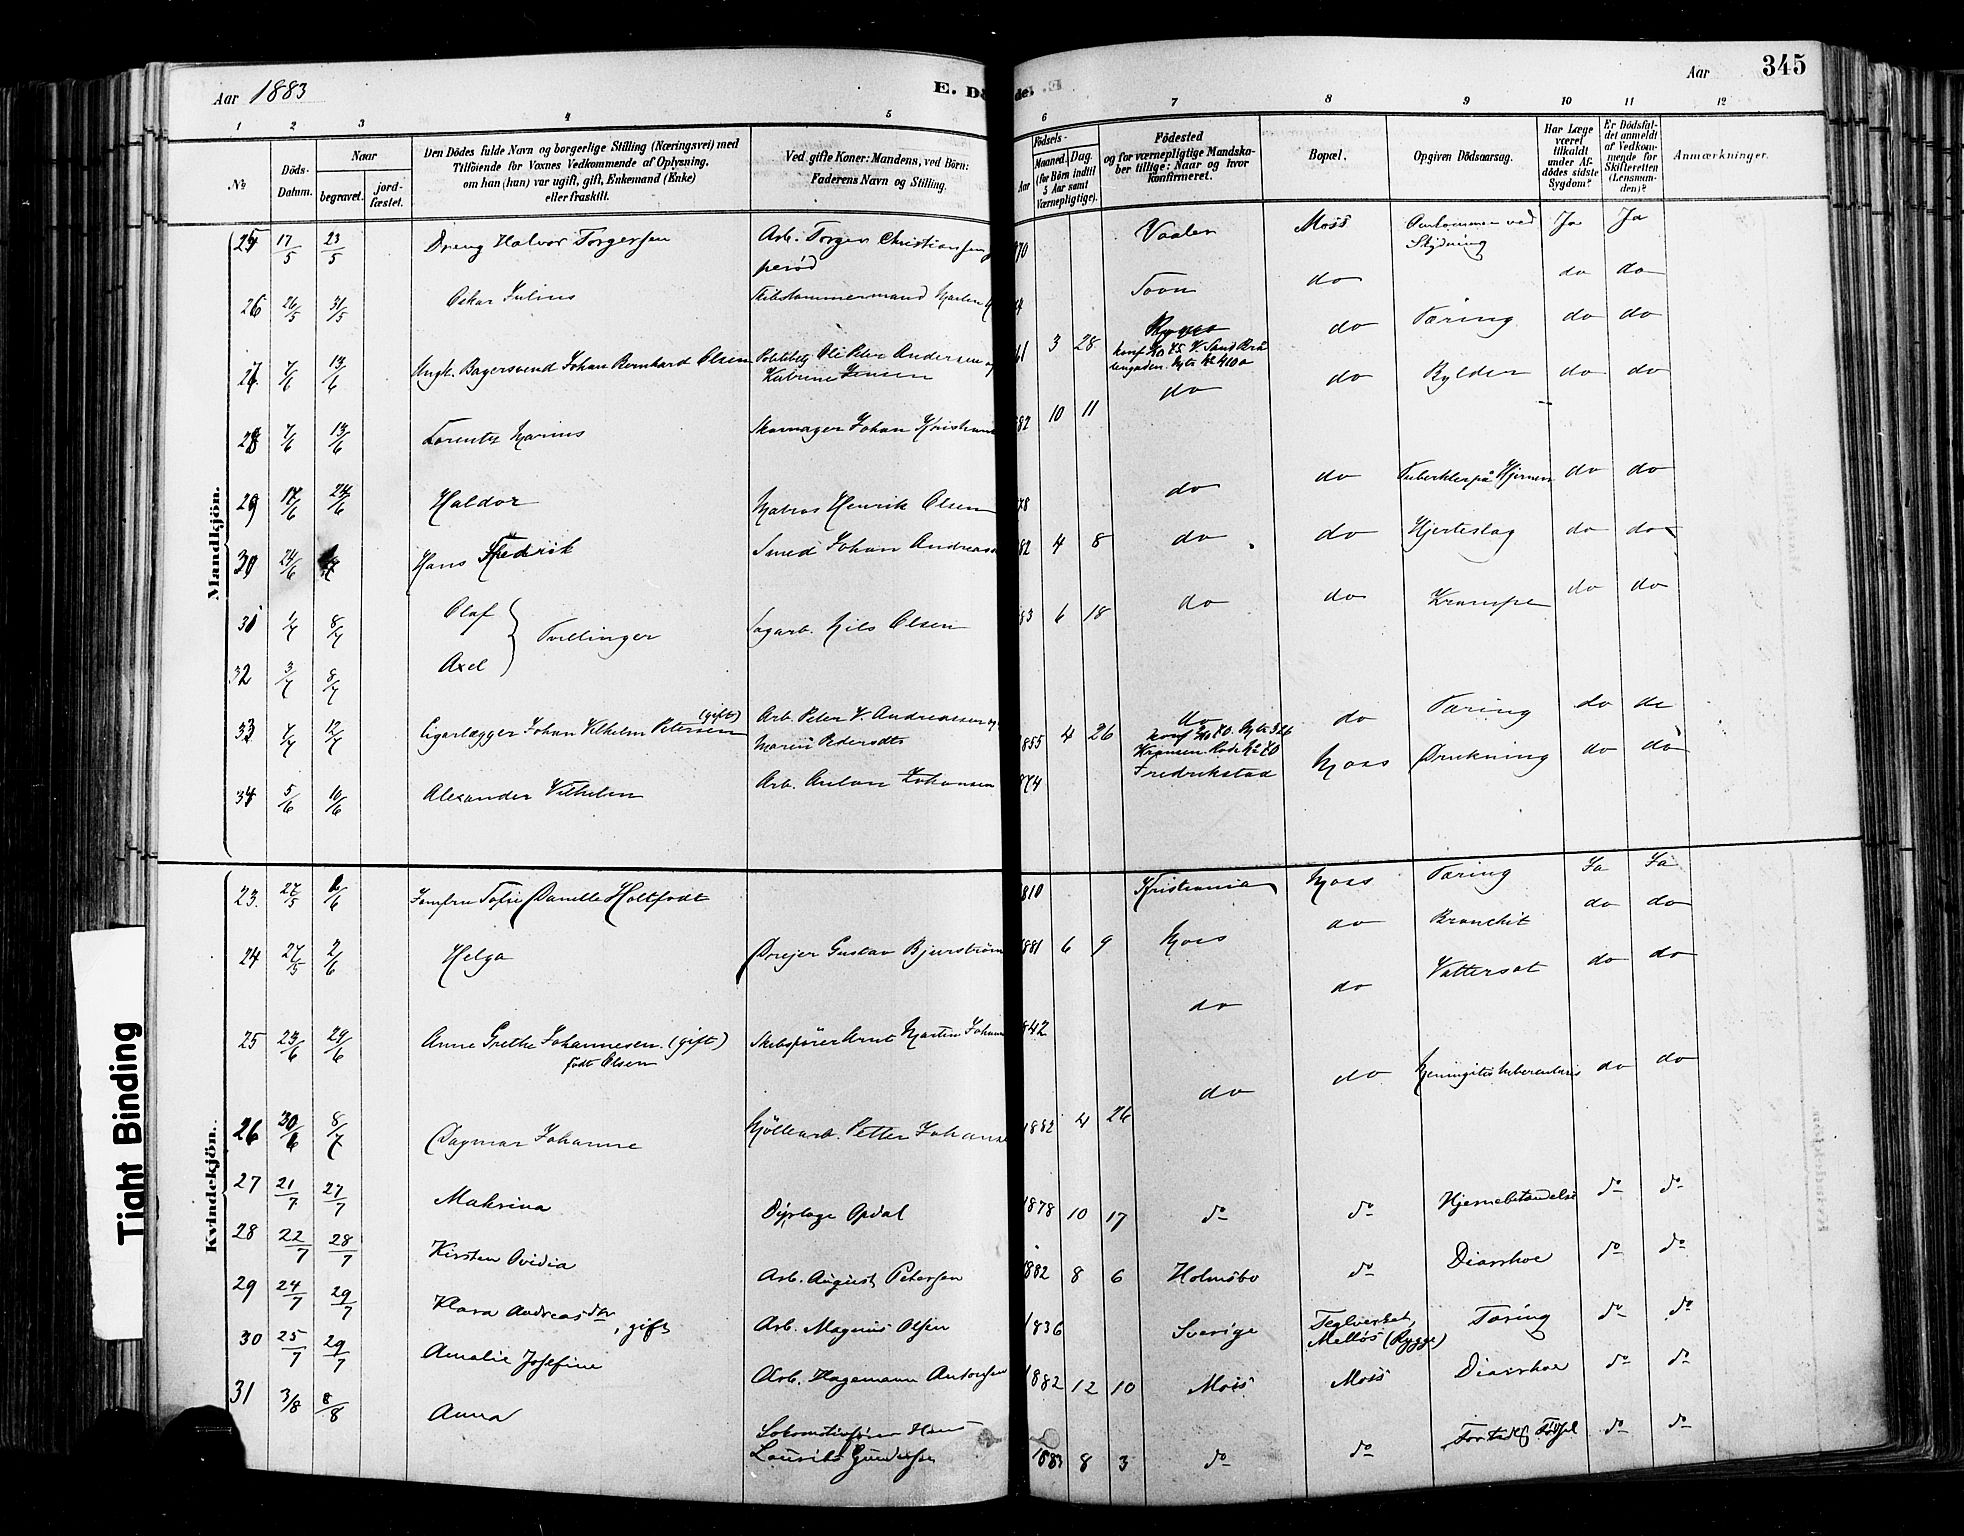 Aar 1883
E. Dö
de.
Aar
345
1 2 3 4 5 6 7 8 9 10 11 12
No
Döds-Datum.
Naar
begravet.
jord-fæstet.
Den Dödes fulde Navn og borgerlige Stilling (Næringsvei) med
Tilföiende for Voxnes Vedkommende af Oplysning,
om han (hun) var ugift, gift, Enkemand (Enke)
eller fraskilt.
Ved gifte Koner: Mandens, ved Börn:
Faderens Navn og Stilling.
Födsels-
Aar
Maaned. Dag.
(for Börn indtil
5 Aar samt
Værnepligtige).
Födested
og for værnepligtige Mandska-
ber tillige: Naar og hvor
konfirmeret.
Bopæl.
Opgiven Dödsaarsag.
Har Læge
været
tilkaldt
under Af-
dödes sidste
Sygdom?
Er Dödsfal-
det anmeldt
af Vedkom-
mende for
Skifteretten
(Lensman-
den)?
Anmærkninger.
Mandkjön.
25 17/5 23/5 Dreng Halvor Torgersen Arb. Torger Christiansen 70 Vaaler Moss Omkommen ved Ja Ja
perød Stydning
26 26/5 31/5 Oskar Julius Skibstømmermand Martin Soon do do do
27 7/6 13/6 Ungk. Bagersvend Johan Bernhard Olsen Politibetj. Ole Peter Andersen og 61 3 28 Rygge do Tæring do do
Katrine Jensen
28 7/6 13/6 Lorentz Marius Skomager Johan Kristian 82 10 11 do do do do
29 17/6 24/6 Haldor Matros Henrik Olsen 78 do do Tuberkler på Hjernen do do
30 24/6 Hans Fredrik Smed Johan Andreas 82 4 8 do do Hjerteslag do do
31 1/7 8/7 Olaf Tvillinger Sagarb. Nils Olsen 83 6 18 do do Krampe do do
32 3/7 8/7 Axel
33 7/7 12/7 Cigarlægger Johan Vilhelm Petersen (gift) Arb. Peter V. Andreassen og 1855 4 26 do do Tæring do do
Maren Pedersdtr
34 5/6 10/6 Alexander Vilhelm Arb. Anton Johansen 874 Fredrikstad Moss Drukning do do
Kvindekjön.
23. 27/5 1/6 Jomfru Sofie Danelle Holtfodt 1810 Kristiania Moss Tæring Ja Ja
24 27/5 2/6 Helga Drejer Gustav Bjurstrøm 1881 6 9 Moss do Bronchit do do
25 23/6 29/6 Anne Grethe Johannesen. (gift) Skibsfører Arnt Martin Johan 842 do do Vattersot do do
født Olsen
26 30/6 8/7 Dagmar Johanne Møllearb. Petter Johans 1882 4 26 do do Meningitis tuberculosis do do
27 21/7 27/7 Makrina Dyrlæge Opdal 1878 10 17 do do Hjernebetændelse do do
28 22/7 28/7 Kirsten Ovidia Arb. August Petersen 1882 8 6 Holmsbo do Diarrhoe do do
29 24/7 29/7 Klara Andreasdtr, gift Arb. Magnus Olsen 1836 Sverige Teglverket, Tæring do do
Melløs (Rygge)
30 25/7 29/7 Amalie Josefine Arb. Hagemann Antonsen 1882 12 10 Moss Moss Diarrhoe do do
31 3/8 8/8 Anna Lokomotivfører Hans 1883 8 3 do do For tidlig Fødsel do do
Lauritz Gundersen
Tight Binding